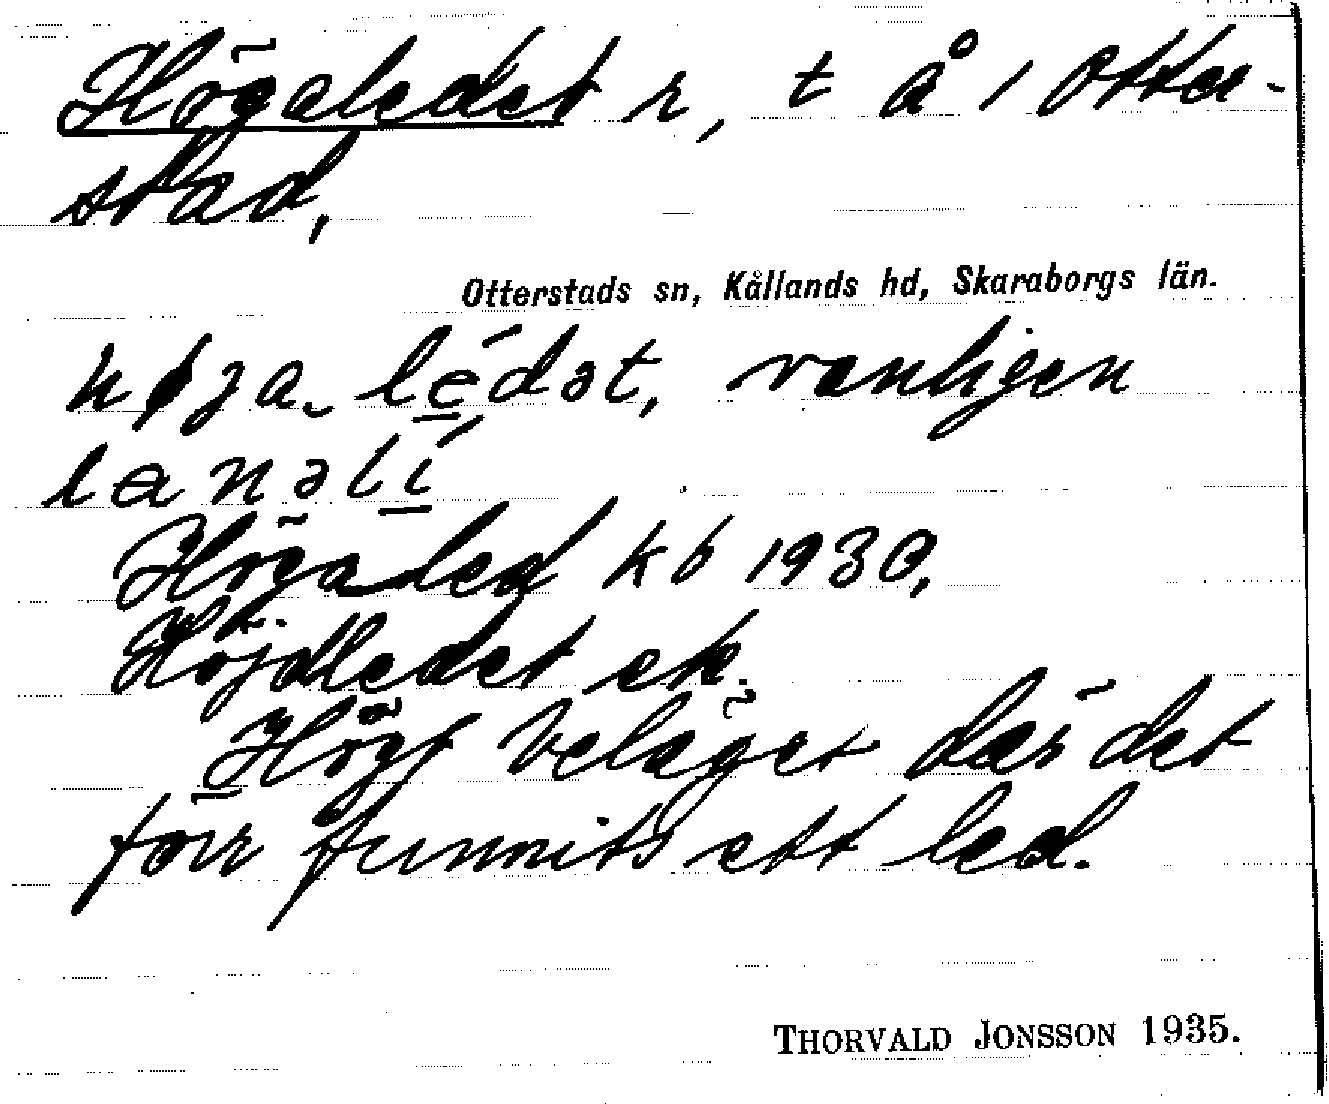 Högaledet r, t å 1 Otter-
stad,
Otterstads sn, Kållands hd, Skaraborgs län.
høga lédət, vanligen
Högaled kb 1930,
Höjdledet ek.
Högt beläget där det
förr funnits ett led.
THORVALD JONSSON 1935.